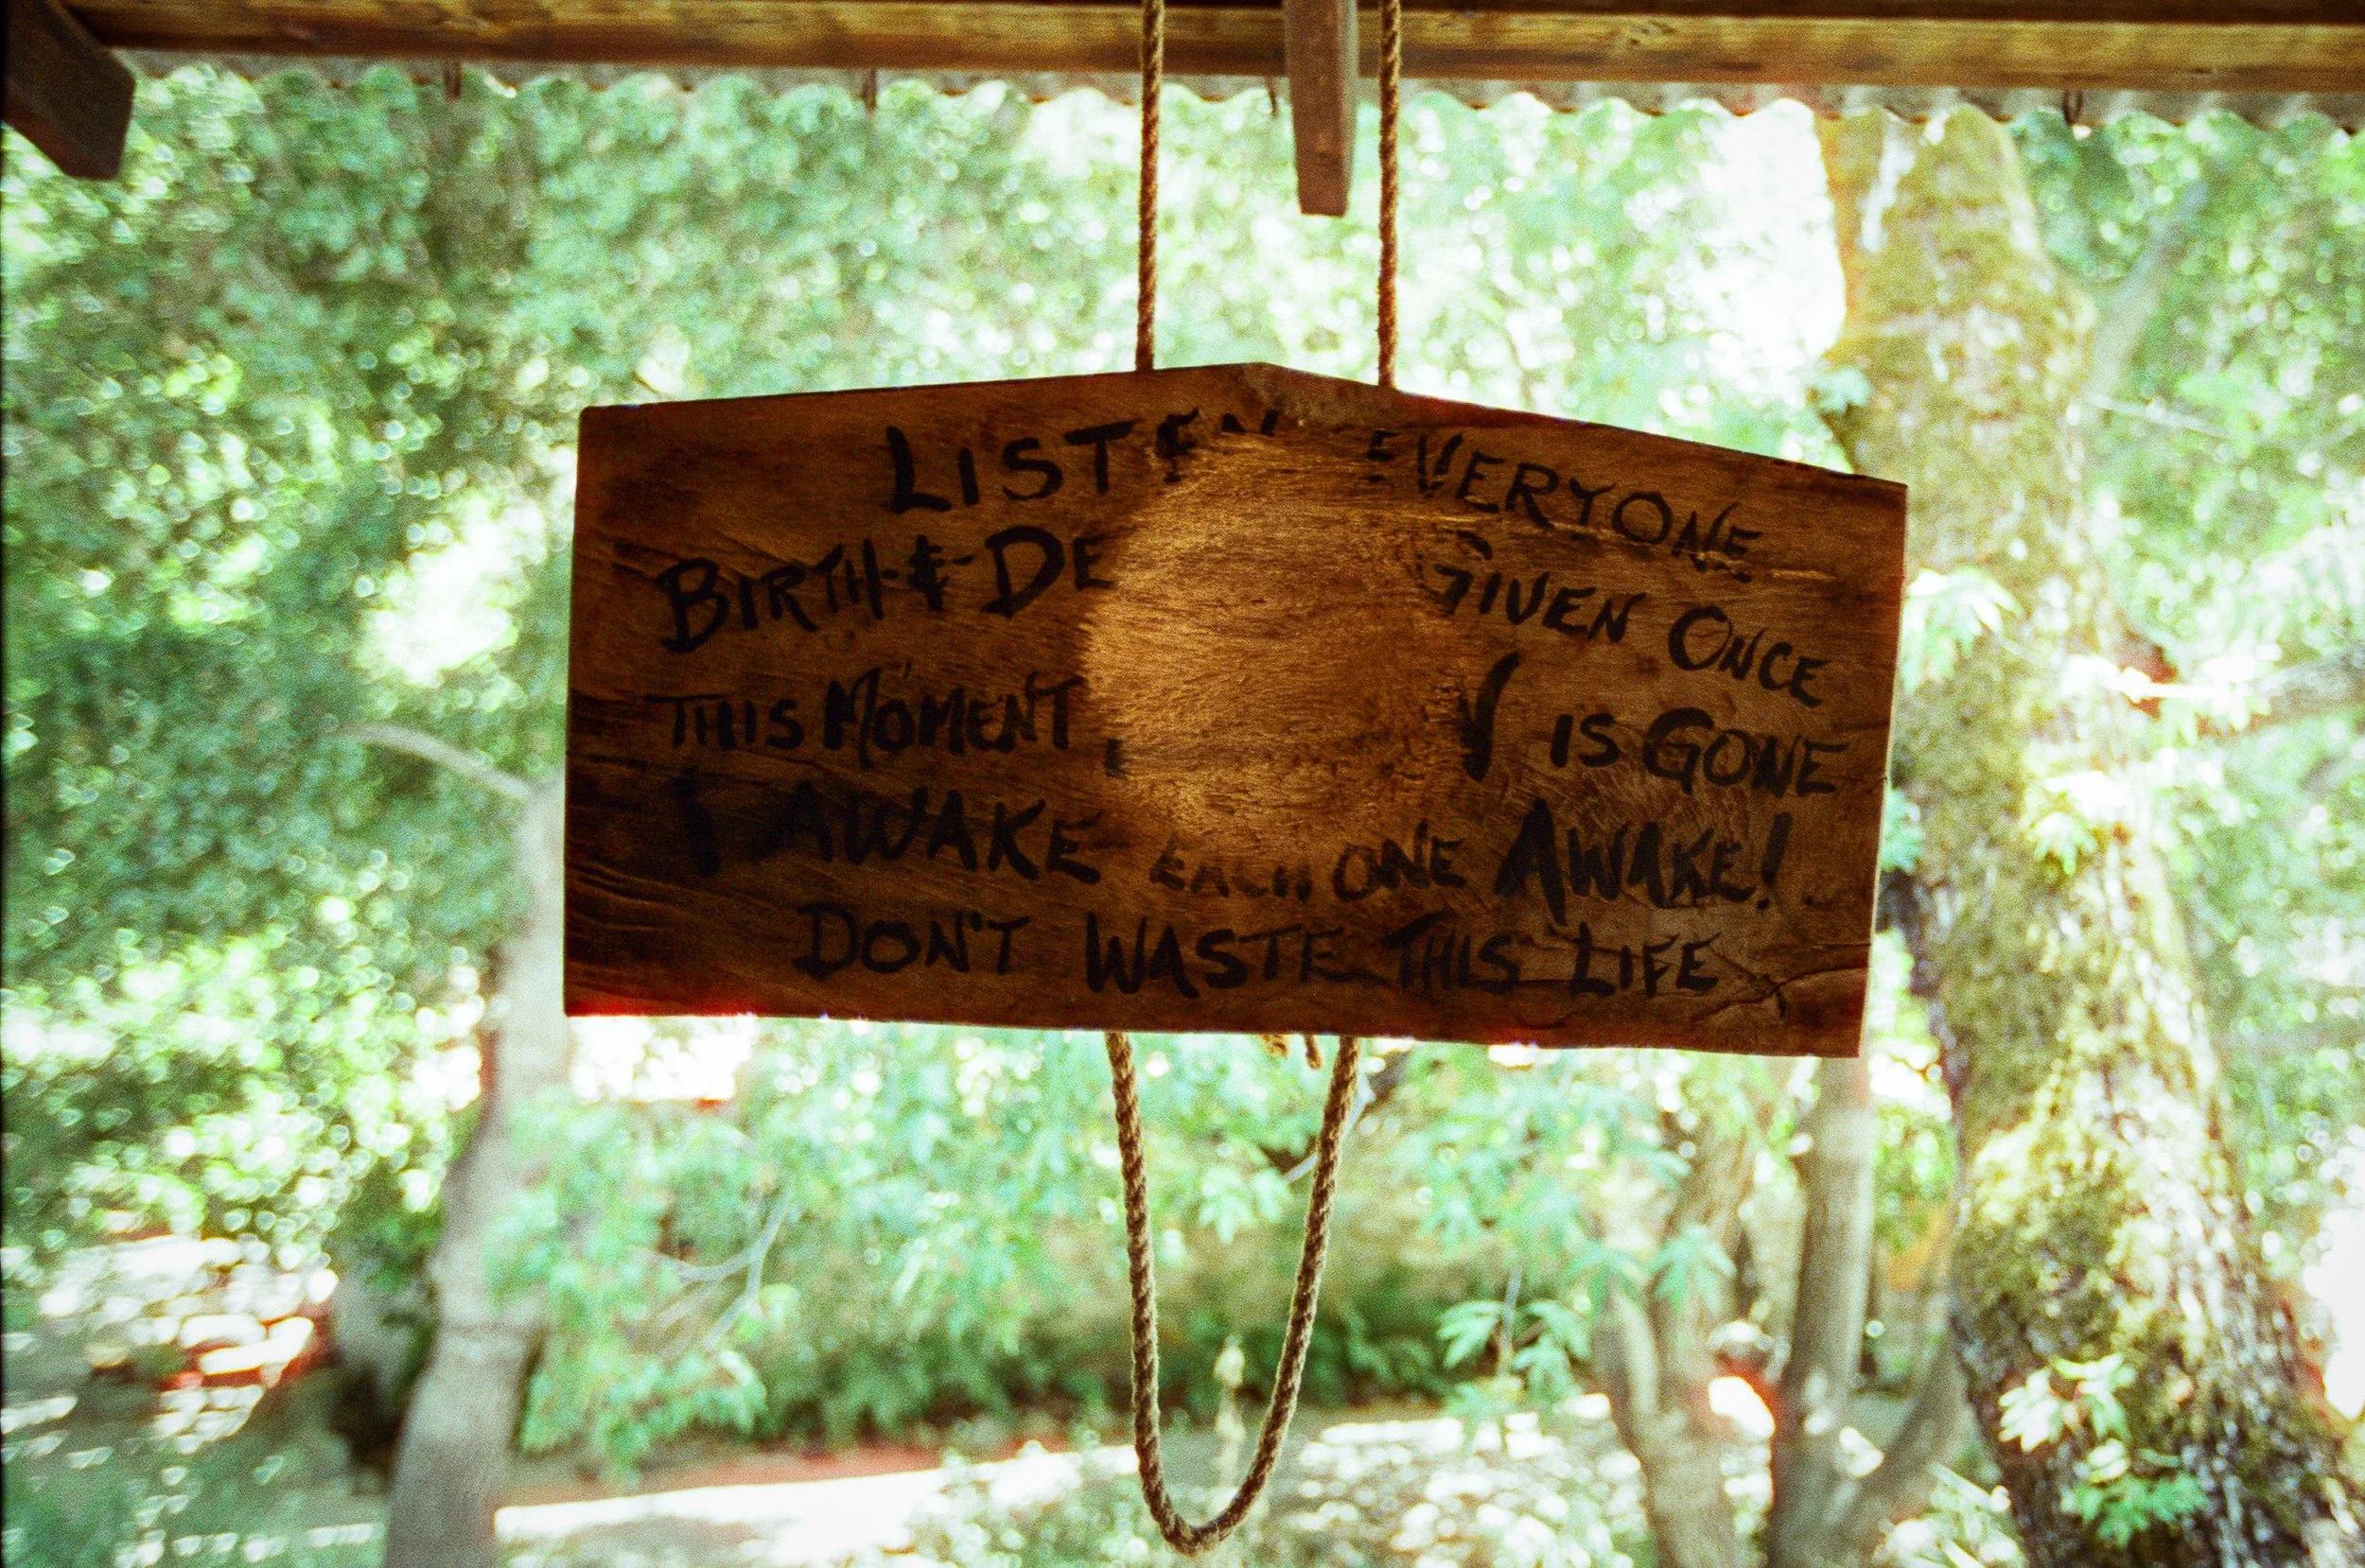 LISTEN EVERYONE
BIRTH & DE GIVEN ONCE
THIS MOMENT IS GONE
AWAKE EACH ONE AWAKE!
DON'T WASTE THIS LIFE